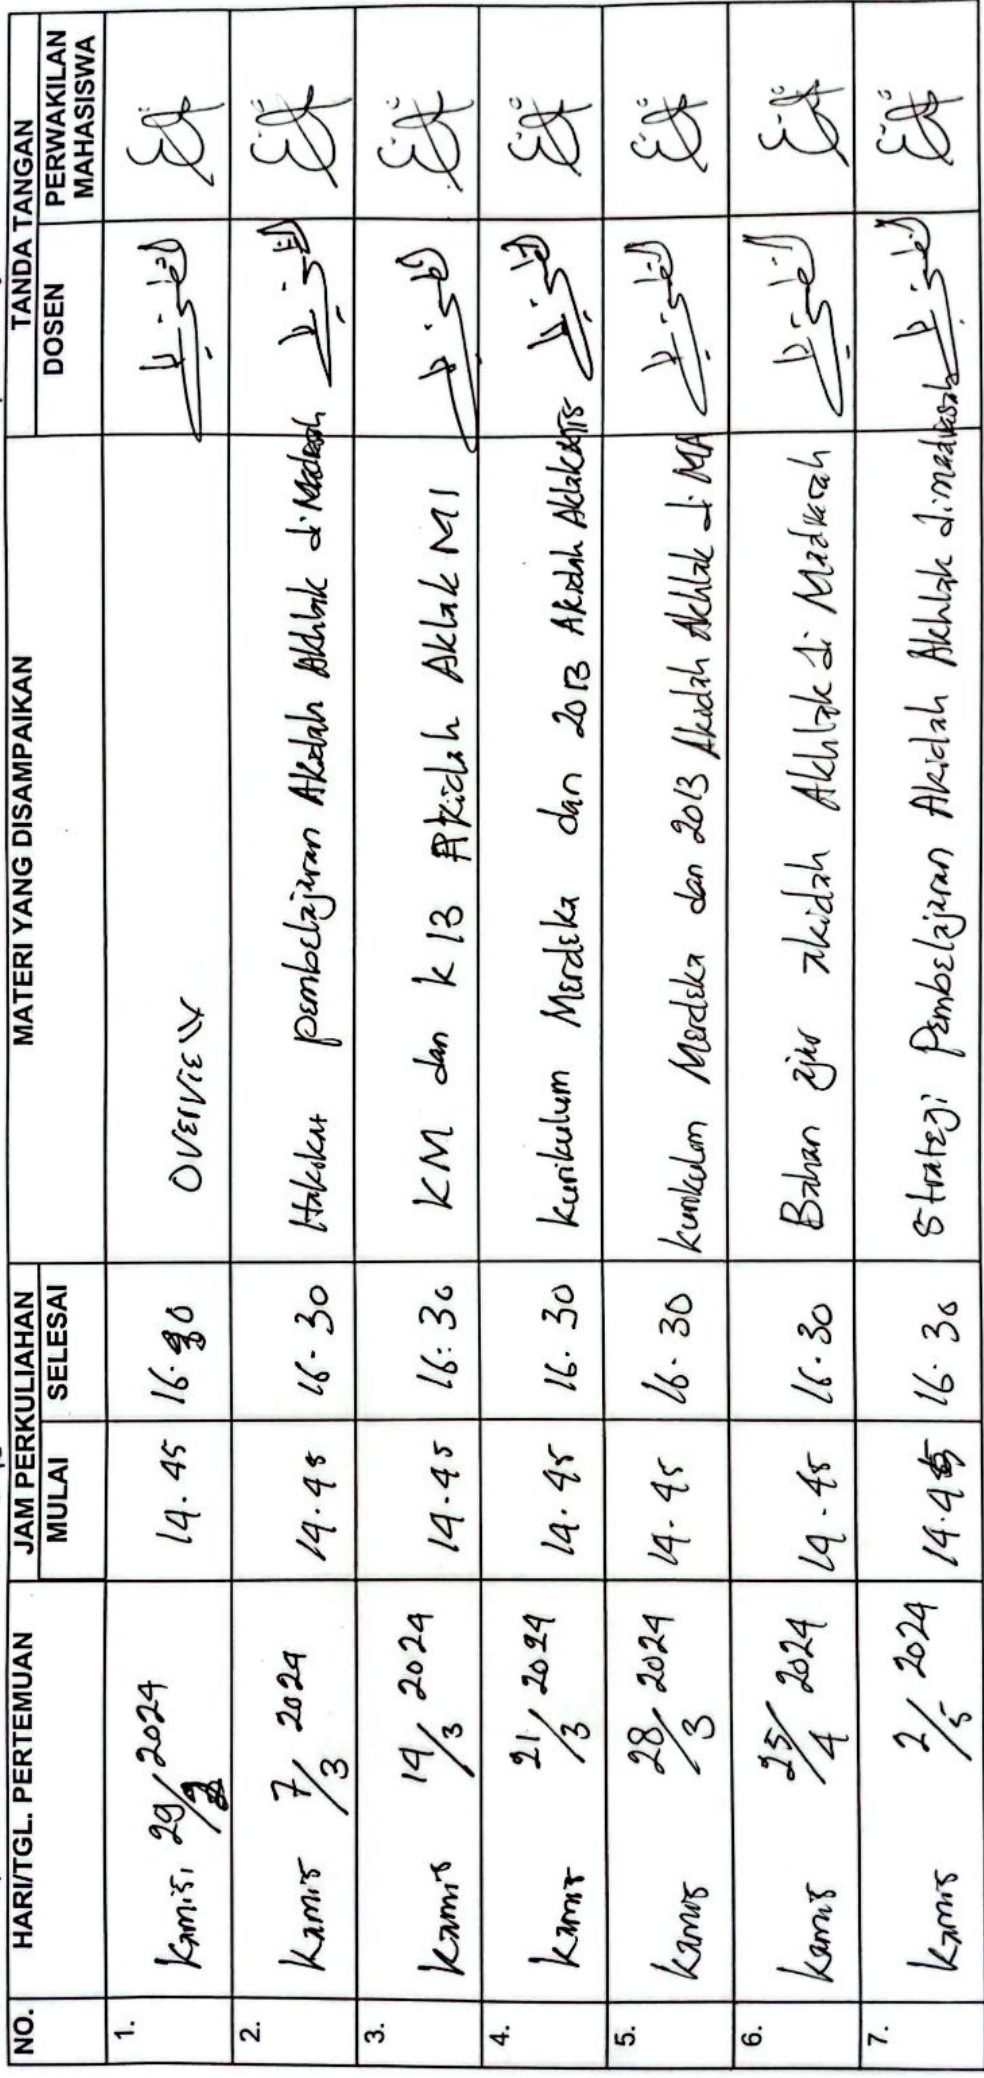 NO. HARI/TGL. PERTEMUAN JAM PERKULIAHAN MATERI YANG DISAMPAIKAN TANDA TANGAN
MULAI SELESAI DOSEN PERWAKILAN MAHASISWA
1. Kamis, 29/2 2024 14.45 16.30 Overview
2. Kamis 7/3 2024 14.45 16.30 Hakekat pembelajaran Akidah Akhlak di Madrasah
3. Kamis 14/3 2024 14.45 16:30 KM dan K 13 Akidah Aklak MI
4. Kamis 21/3 2024 14.45 16.30 Kurikulum Merdeka dan 2013 Akidah Akhlak
5. Kamis 28/3 2024 14.45 16.30 Kurikulum Merdeka dan 2013 Akidah Akhlak di MA
6. Kamis 25/4 2024 14.45 16.30 Bahan ajar akidah Akhlak di Madrasah
7. Kamis 2/5 2024 14.45 16.30 Strategi Pembelajaran Akidah Akhlak di madrasah